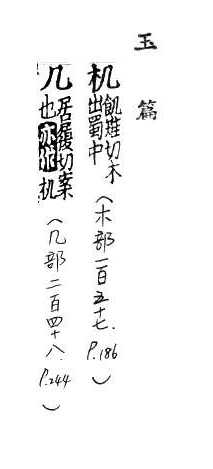 玉篇
机飢雉切木出蜀中（木部一百五十七．P.186）
几居履切案也亦作机（几部二百四十八．P.244）